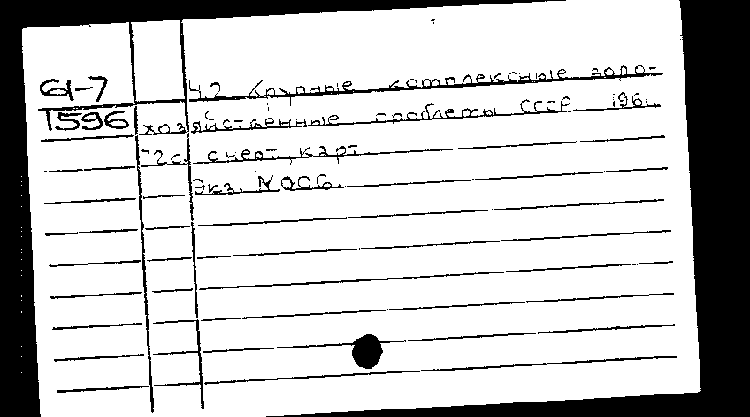 61-7
1596
Ч.2 Крупные комплексные водо-
хозяйственные проблемы СССР 1961.
72с. с черт., карт.
Экз. №